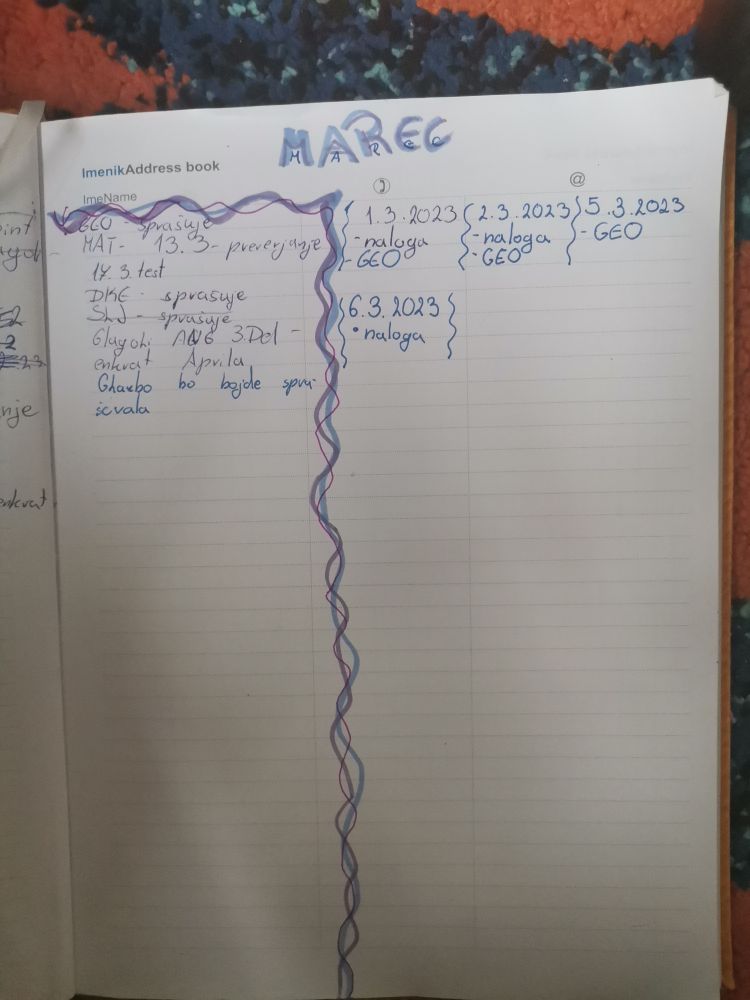 MAREC
M A R E C
ImenikAddress book
ImeName
@
GEO - sprašuje
MAT - 13.3 - preverjanje
17.3. test
DKE - sprašuje
SLJ - sprašuje
Glagoli ANG 3.Del -
enkrat Aprila
Glasbo bo bojde spra-
ševala
1.3.2023
- naloga
- GEO
2.3.2023
- naloga
- GEO
5.3.2023
- GEO
6.3.2023
• naloga
nje
enkrat